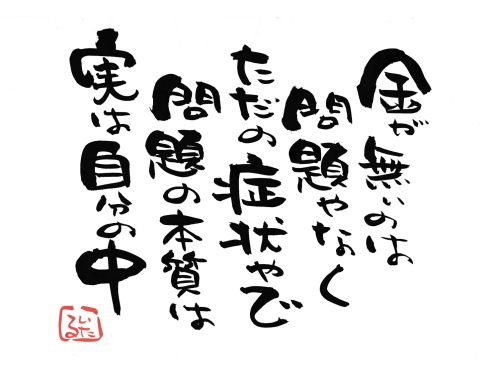 金が無いのは
問題やなく
ただの症状やで
問題の本質は
実は自分の中